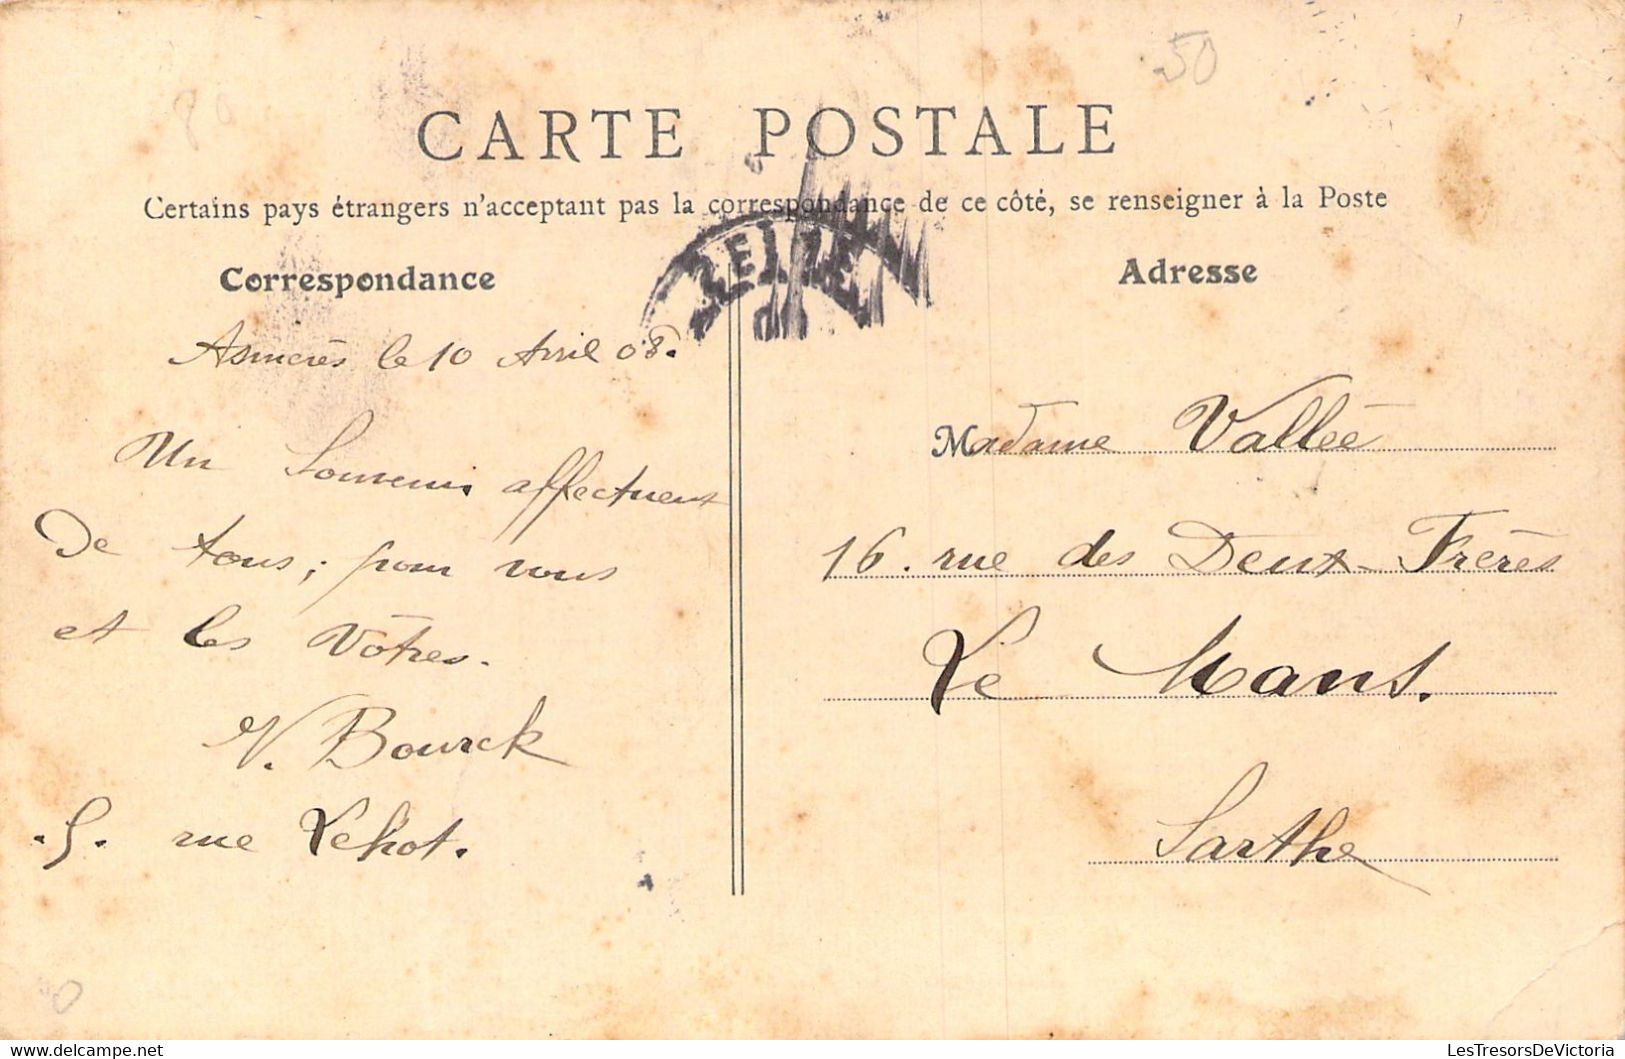 50
CARTE POSTALE
Certains pays étrangers n'acceptant pas la correspondance de ce côté, se renseigner à la Poste
Correspondance
Asnières le 10 Avril 08.
Un Souvenir affectueux
De tous; pour vous
et les Vôtres.
V. Bourck
5. rue Lehot.
Adresse
Madame Vallée
16. rue des Deux-Frères
Le Mans.
Sarthe
LesTresorsDeVictoria